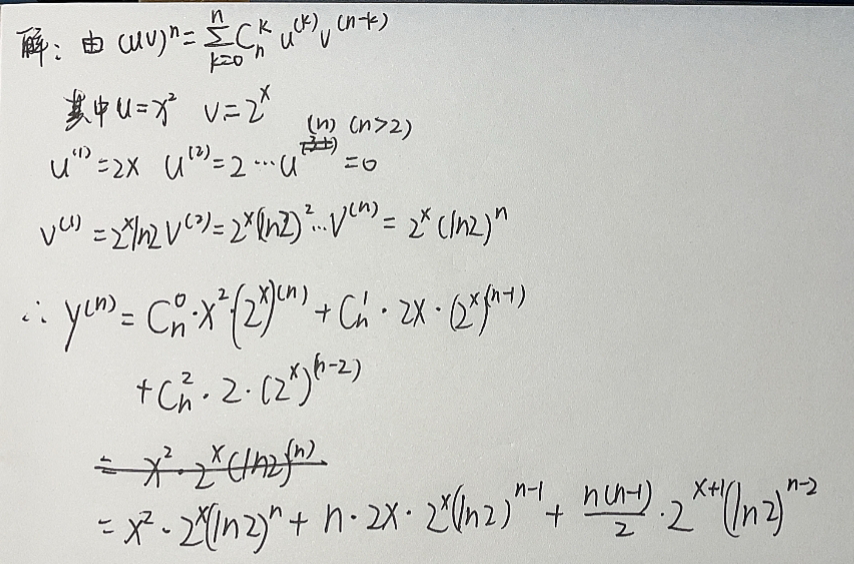 解: 由 (uv)ⁿ = Σ_{k=0}^{n} C_n^k u^{(k)} v^{(n-k)}
其中 u = x² v = 2^x
u^{(1)} = 2x u^{(2)} = 2 ⋯ u^{(n)} = 0 (n>2)
v^{(1)} = 2^x ln2 v^{(2)} = 2^x (ln2)² ⋯ v^{(n)} = 2^x (ln2)^n
∴ y^{(n)} = C_n^0 · x² · (2^x)^{(n)} + C_n^1 · 2x · (2^x)^{(n-1)}
+ C_n^2 · 2 · (2^x)^{(n-2)}
= x² · 2^x (ln2)^{(n)}
= x² · 2^x (ln2)^n + n · 2x · 2^x (ln2)^{n-1} + \frac{n(n-1)}{2} · 2^{x+1} (ln2)^{n-2}